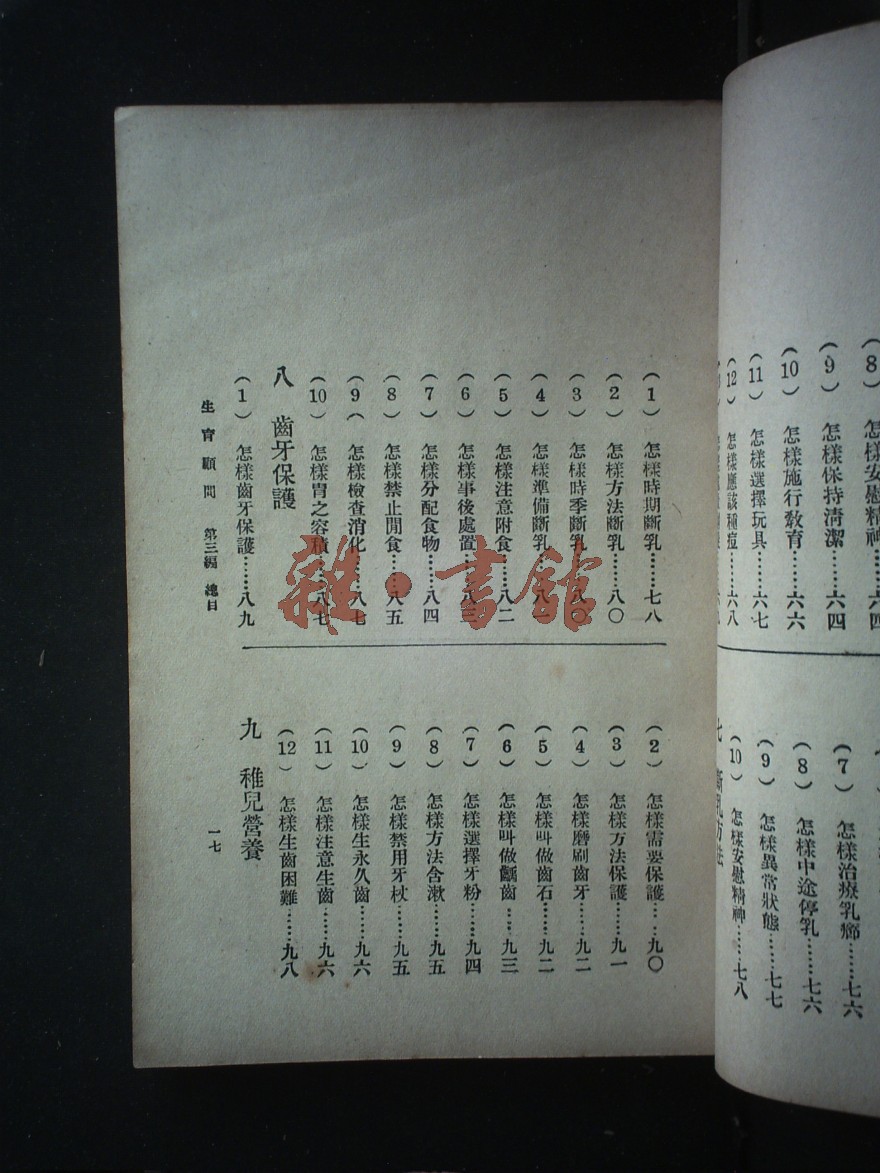 (8) 怎樣安慰精神……六四
(9) 怎樣保持清潔……六四
(10) 怎樣施行教育……六六
(11) 怎樣選擇玩具……六七
(12) 怎樣應該種痘……六八
(7) 怎樣治療乳癤……七六
(8) 怎樣中途停乳……七六
(9) 怎樣異常狀態……七七
(10) 怎樣安慰精神……七八
七 斷乳方法
(1) 怎樣時期斷乳……七八
(2) 怎樣方法斷乳……八〇
(3) 怎樣時季斷乳……八〇
(4) 怎樣準備斷乳……八一
(5) 怎樣注意附食……八二
(6) 怎樣事後處置……八三
(7) 怎樣分配食物……八四
(8) 怎樣禁止閒食……八五
(9) 怎樣檢查消化……八七
(10) 怎樣胃之容積……八七
八 齒牙保護
(1) 怎樣齒牙保護……八九
(2) 怎樣需要保護……九〇
(3) 怎樣方法保護……九一
(4) 怎樣磨刷齒牙……九二
(5) 怎樣叫做齒石……九二
(6) 怎樣叫做齲齒……九三
(7) 怎樣選擇牙粉……九四
(8) 怎樣方法含漱……九五
(9) 怎樣禁用牙杖……九五
(10) 怎樣生永久齒……九六
(11) 怎樣注意生齒……九六
(12) 怎樣生齒困難……九八
九 稚兒營養
生育顧問 第三編 總目
一七
雜·書館